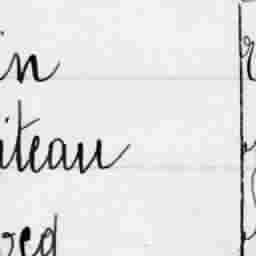 in
iteau
ved